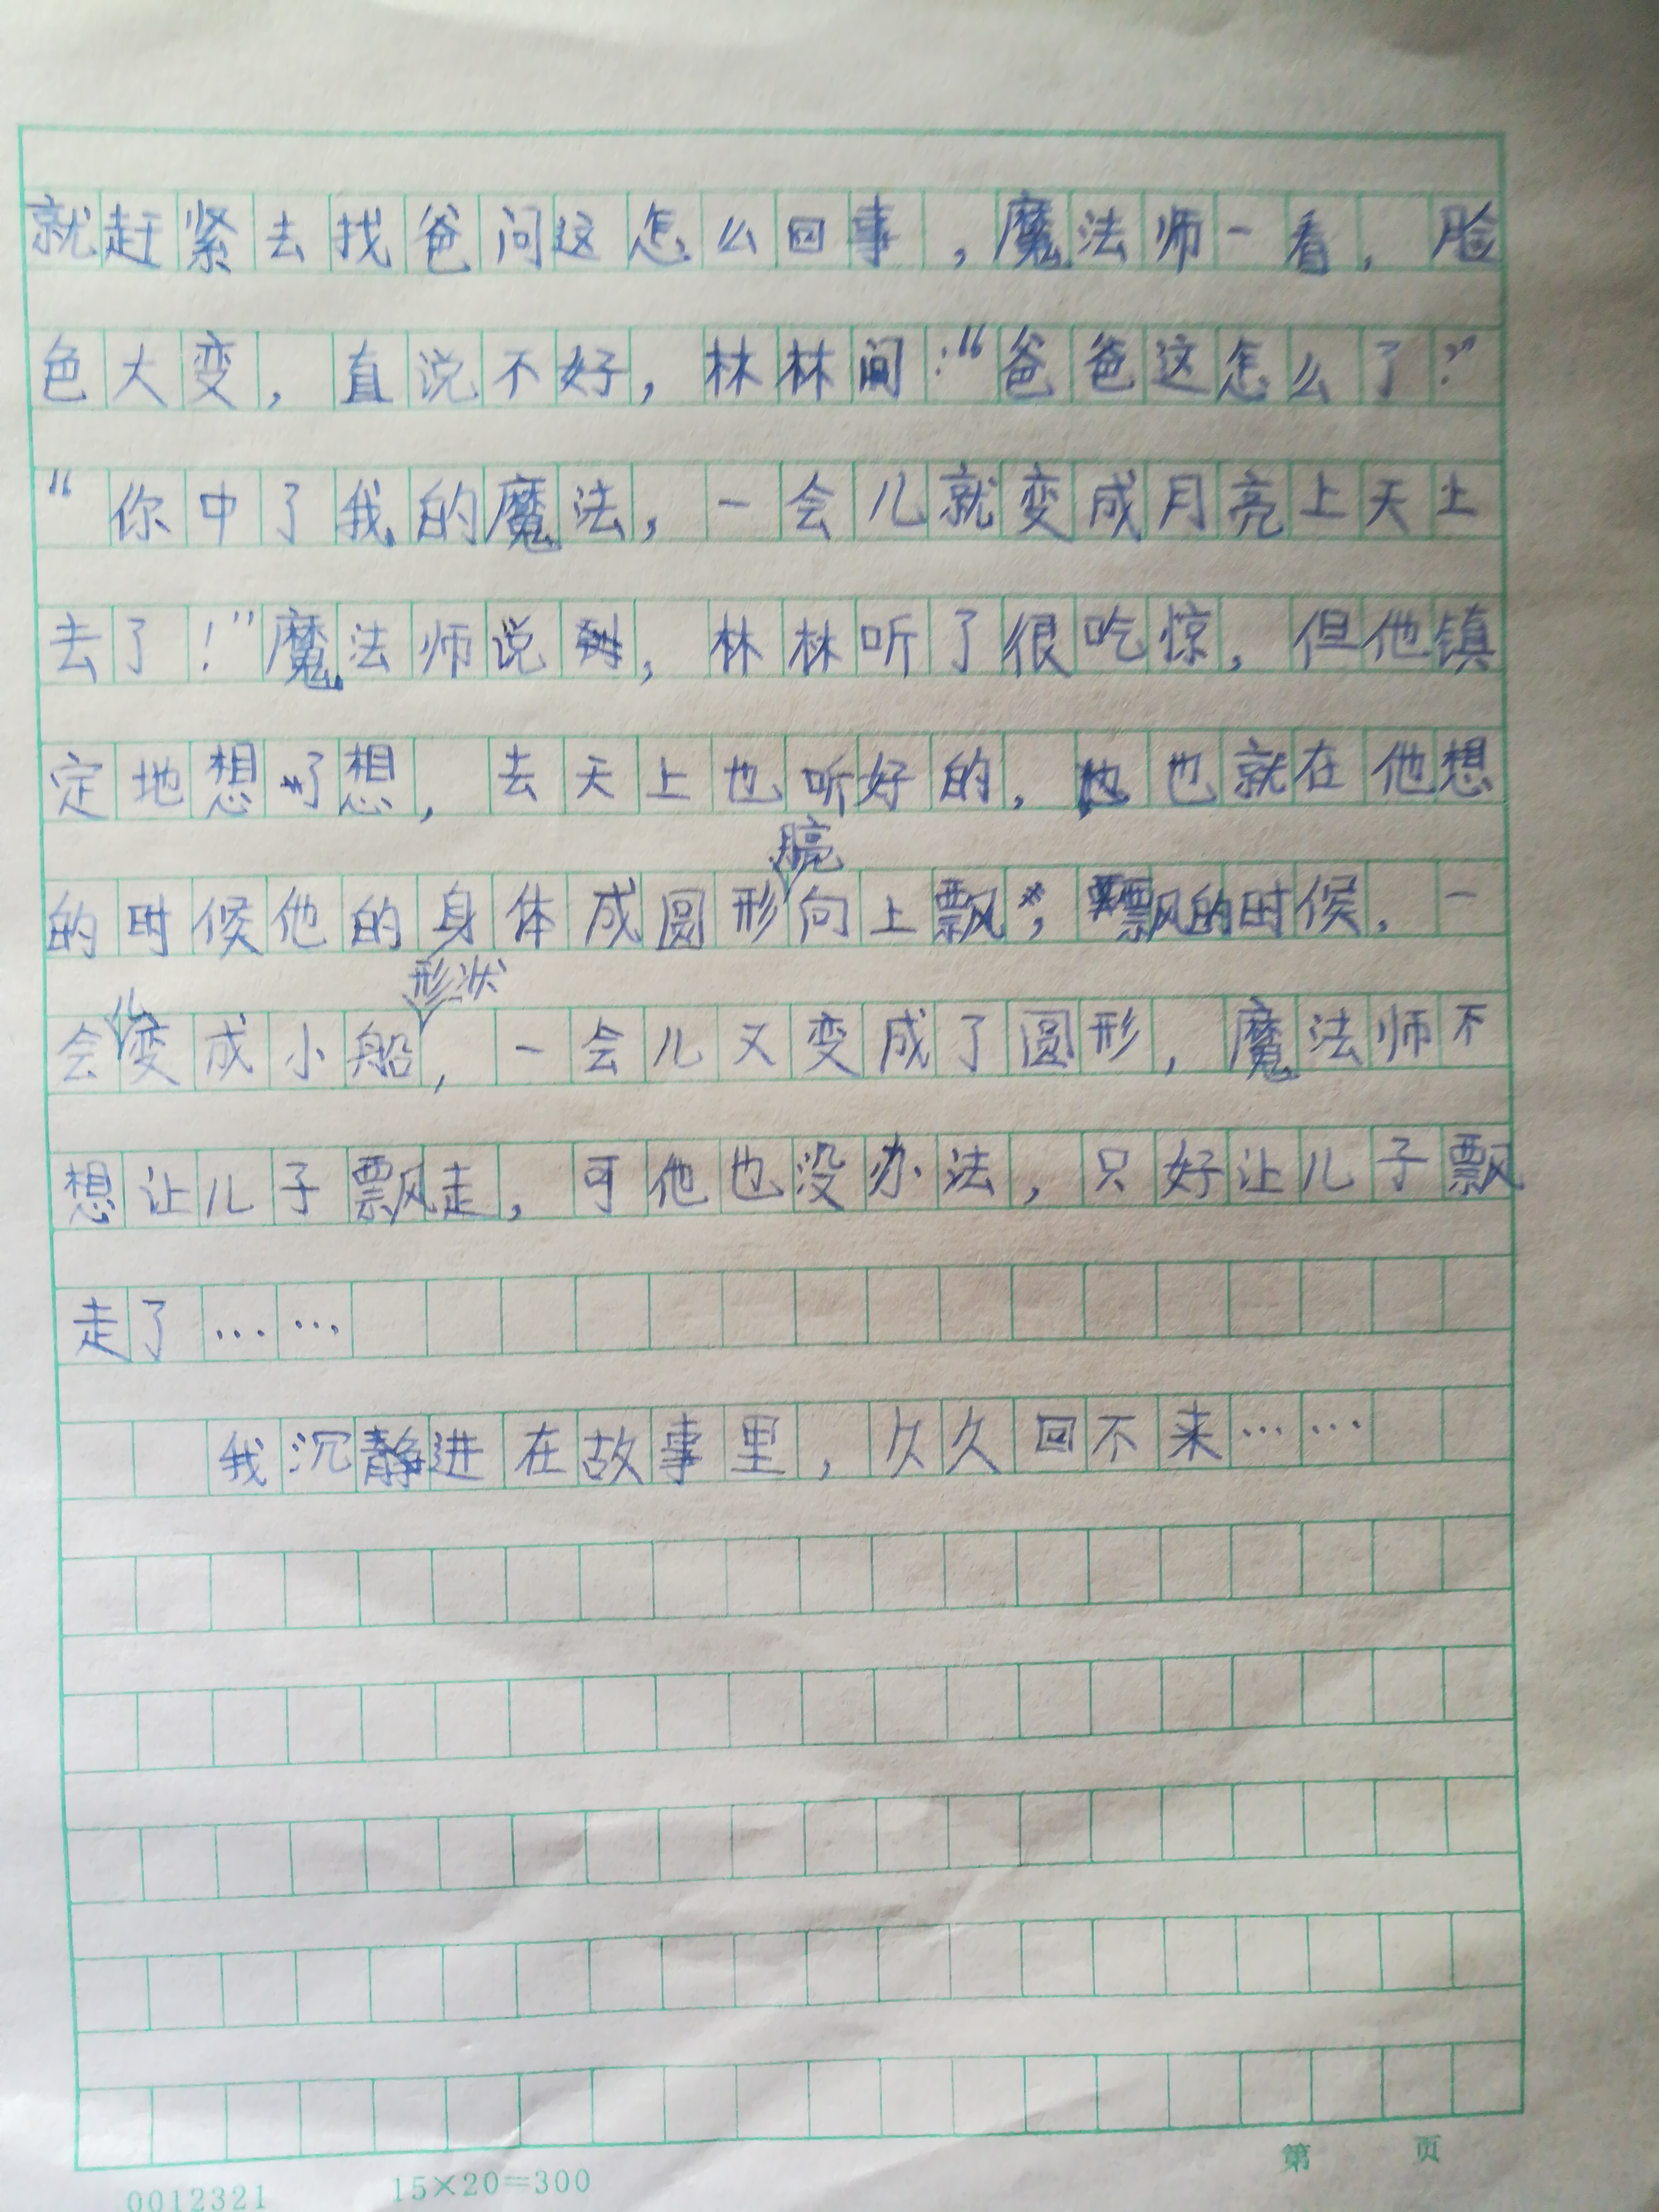 就赶紧去找爸问这怎么回事，魔法师一看，脸
色大变，直说不好，林林问：“爸爸这怎么了？”
“你中了我的魔法，一会儿就变成月亮上天上
去了！”魔法师说到，林林听了很吃惊，但他镇
定地想了想，去天上也听好的，也就在他想
月亮
的时候他的身体成圆形向上飘，飘的时候，一
儿 形状
会变成小船，一会儿又变成了圆形，魔法师不
想让儿子飘走，可他也没办法，只好让儿子飘
走了……
我沉静进在故事里，久久回不来……
0012321 15×20=300 第 页